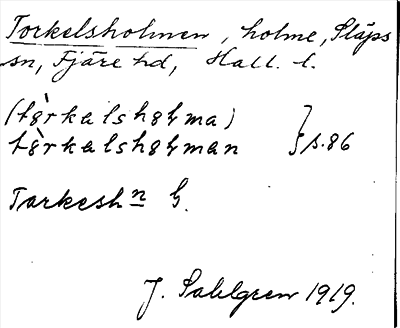 Torkelsholmen, holme, Släps
sn, Fjäre hd, Hall. l.
(tò̤rkalshɷļma)
tò̤rkalshɷļman } s. 86
Torkeshn̲ G.
J. Sahlgren 1919.